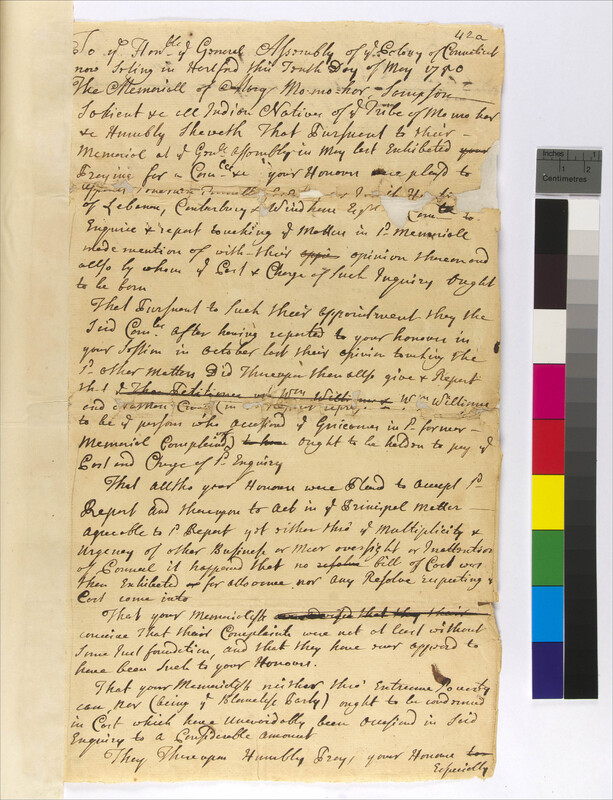 42a
To ye Honble ye General Assembly of ye Colony of Connecticut
now Sitting in Hertford this Tenth Day of May 1750
The Memoriall of Mo-mo-hor, Sampson
Sobient &c all Indian Natives of ye Tribe of Mo mo hor
&c Humbly Sheweth That Pursuant to their
Memorial at ye Genll Assembly in May last Exhibited your
Praying for a Comtee &c your Honours were pleasd to
appoint
of Lebanon, Canterbury & Windham Esqrs Comtee to
Enquire & report touching ye Matters in sd Memoriall
made mention of with their oppi opinion thereon and
allso by whom ye Cost & Charge of Such Inquiry Ought
to be born
That Pursuant to Such their appointment they the
Said Comtee after having reported to your honours in
your Session in October last their opinion touching the
sd other matters Did Thereupon then allso give & Report
that ye The Petitioner Wm Williams & Wm Williams
and
to be ye persons who occasiond ye Grievances in sd former
Memorial Complaind to have ought to be holden to pay ye
Cost and Charge of sd Enquiry
That altho your Honours were Pleasd to accept sd
Report and thereupon to act in ye Principal Matter
agreable to sd Report yet either thro' ye Multiplicity &
Urgency of other Business or Meer oversight or Inattention
of Council it happend that no resolve bill of Cost was
then Exhibited or for allowance nor any Resolve respecting ye
Cost come into
That your Memorialists that they their
conceive That their Complaints were not at least without
Some Just foundation, and that they have ever appeard to
have been Such to your Honours.
That your Memorialists neither thro' Extreeme Poverty
can, nor (being ye Blameless Party) ought to be condemned
in Cost which have Unavoidably been Occasiond in Said
Enquiry to a Considerable amount
They Thereupon Humbly Pray, your Honours to
Especially